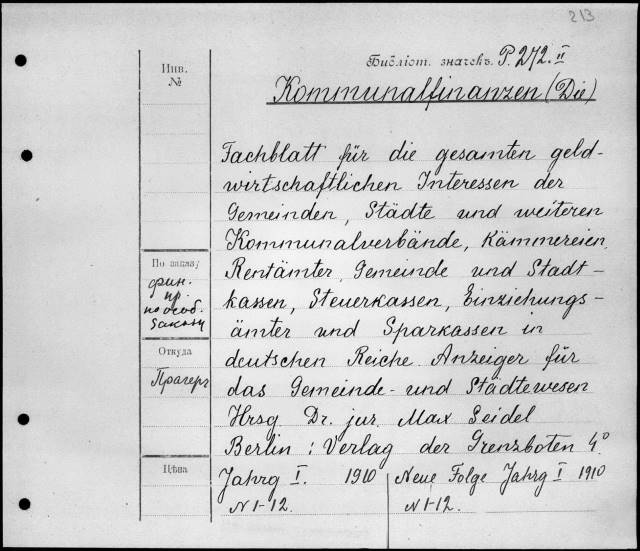 213
Библіот. значекъ. P. 272. II
Инв.
№
Kommunalfinanzen (Die)
Fachblatt für die gesamten geld-
wirtschaftlichen Interessen der
Gemeinden, Städte und weiteren
Kommunalverbände, Kämmereien,
Rentämter, Gemeinde und Stadt-
kassen, Steuerkassen, Einziehungs-
ämter und Sparkassen in
deutschen Reiche. Anzeiger für
das Gemeinde- und Städtewesen
Hrsg. Dr. jur. Max Seidel
Berlin: Verlag der Grenzboten 4°
Jahrg I. 1910
N 1-12.
Neue Folge Jahrg I 1910
N 1-12.
По заказу
фин.
пр.
по особ.
заказу
Откуда
Прагеръ
Цѣна